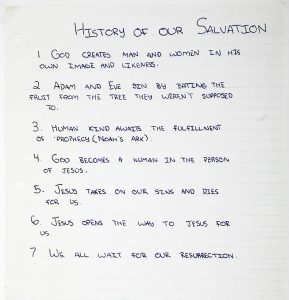 History of our Salvation
1. God creates man and women in his
own image and likeness.
2 Adam and Eve sin by eating the
fruit from the tree they weren't supposed
to.
3. Human kind awaits the fulfillment
of prophecy (Noah's Ark).
4. God becomes a human in the person
of Jesus.
5. Jesus takes on our sins and dies
for us.
6. Jesus opens the way to Jesus for
us
7 We all wait for our resurrection.